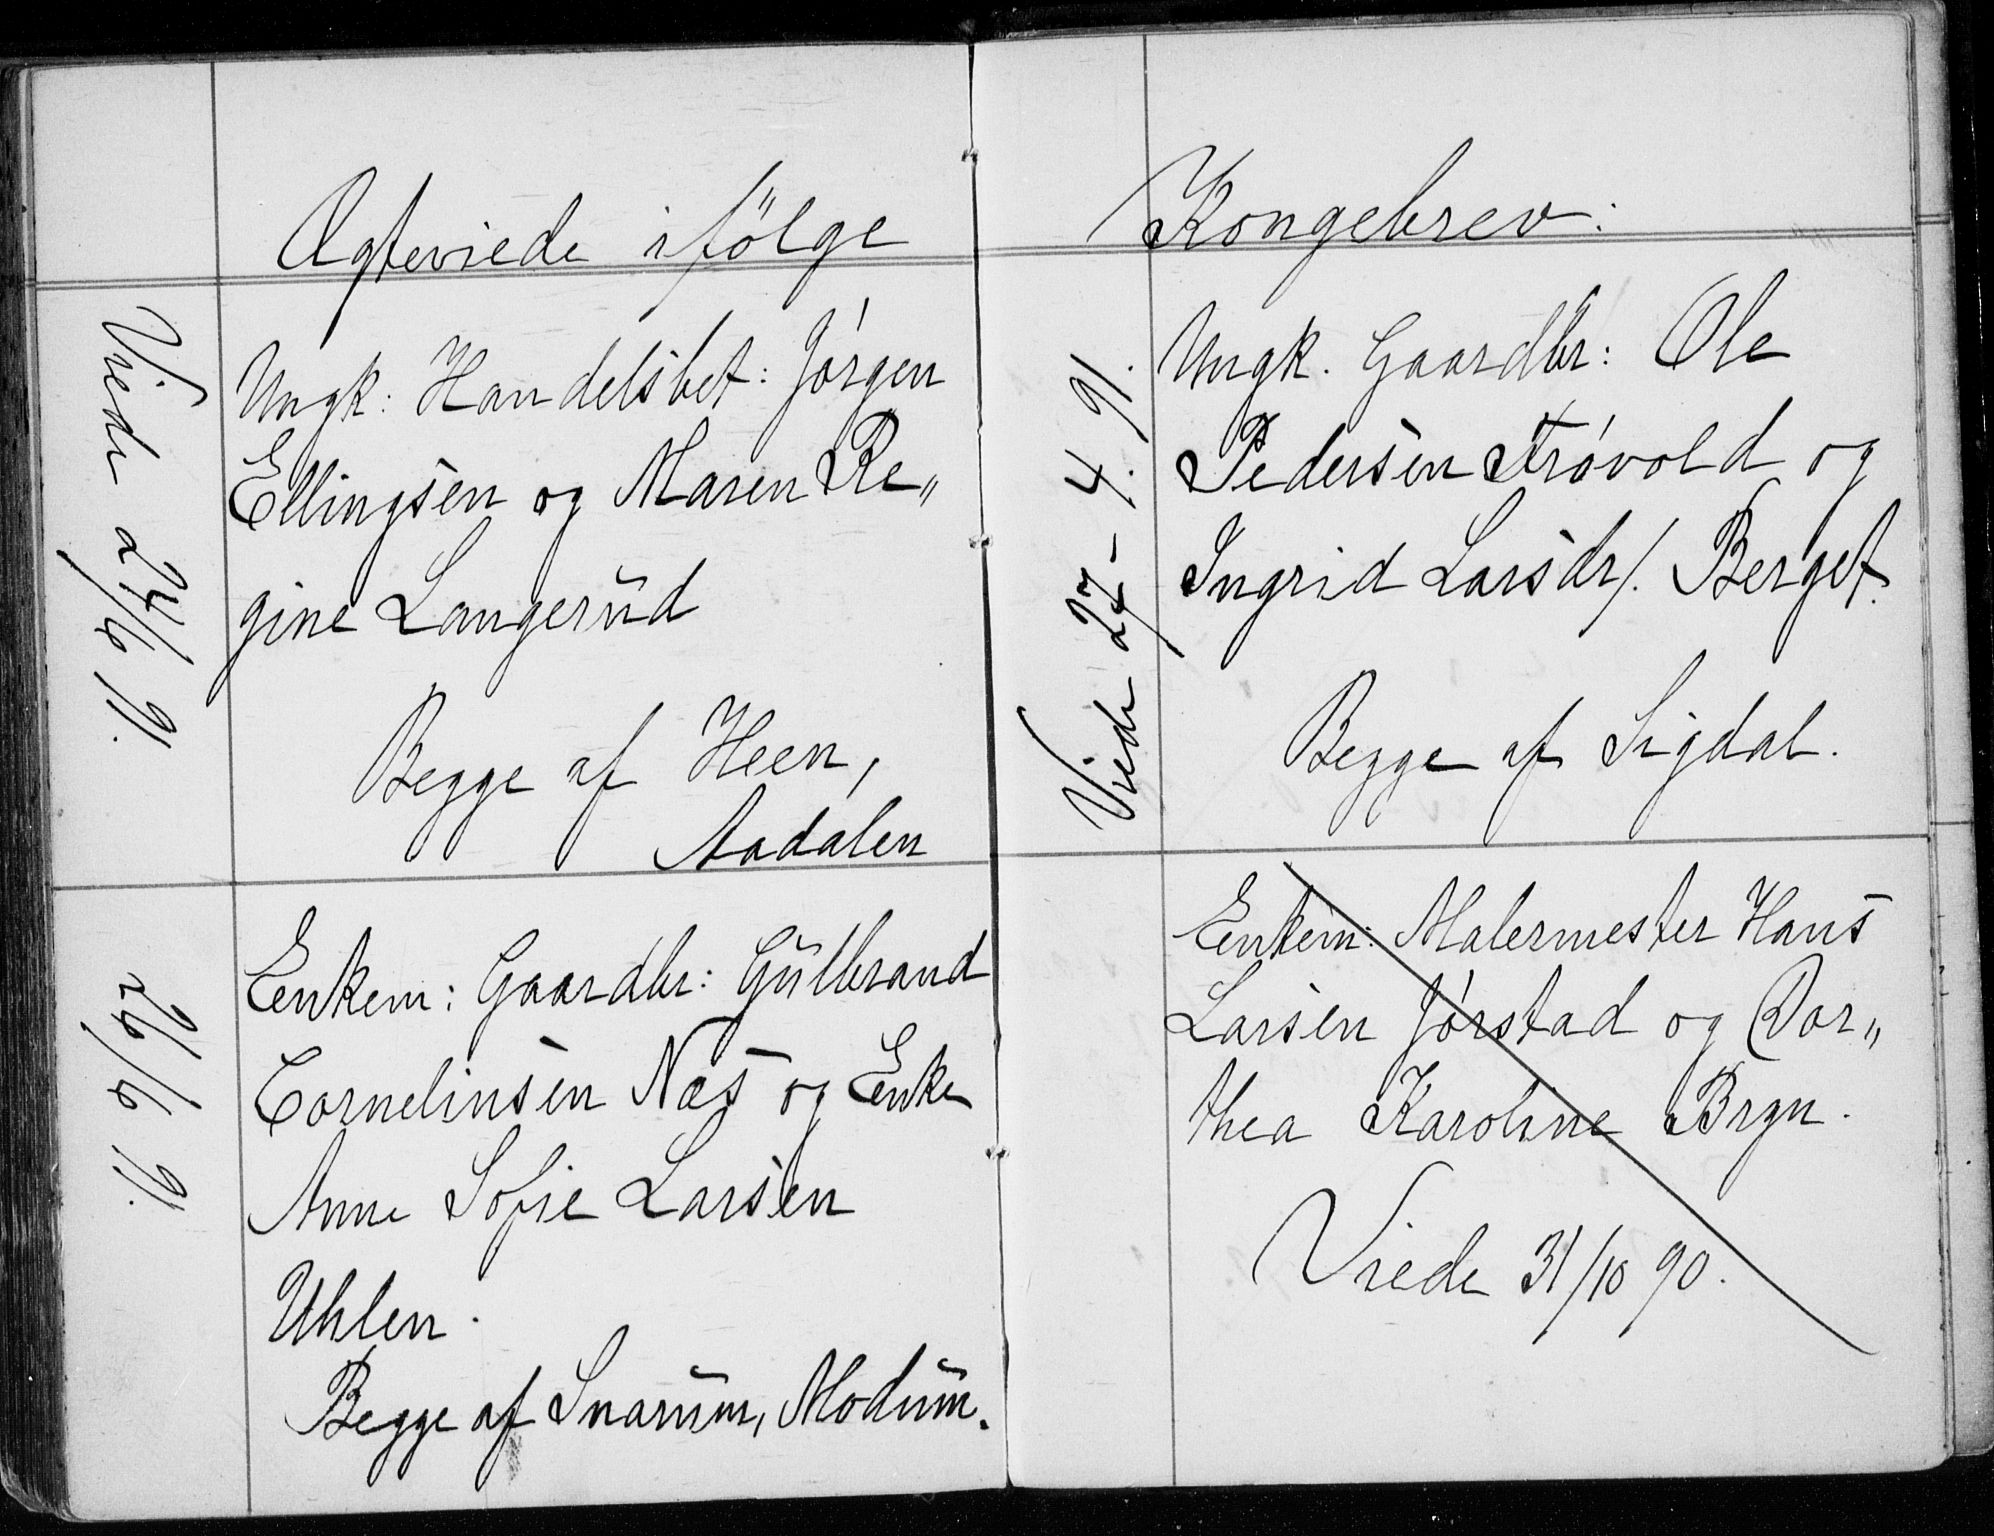 Ægteviede ifölge
Viede 24/6 91.
Ungk: Handelsbet: Jórgen
Ellingsen og Maren Re„
gine Langerud
Begge af Heen,
Aadalen
26/6 91.
Enkem: Gaardbr: Gulbrand
Cornelinsen Næs og Enke
Anne Sofie Larsen
Uhlen.
Begge af Snarum, Modum.
Kongebrev:
Viede 27-4. 91.
Ungk. Gaardbr: Ole
Pedersen Frøvold og
Ingrid Larsdr/. Berget.
Begge af Sigdal.
Enkem: Malermester Hans
Larsen Jórstad og Dor„
thea Karoline Bryn.
Viede 31/10 90.